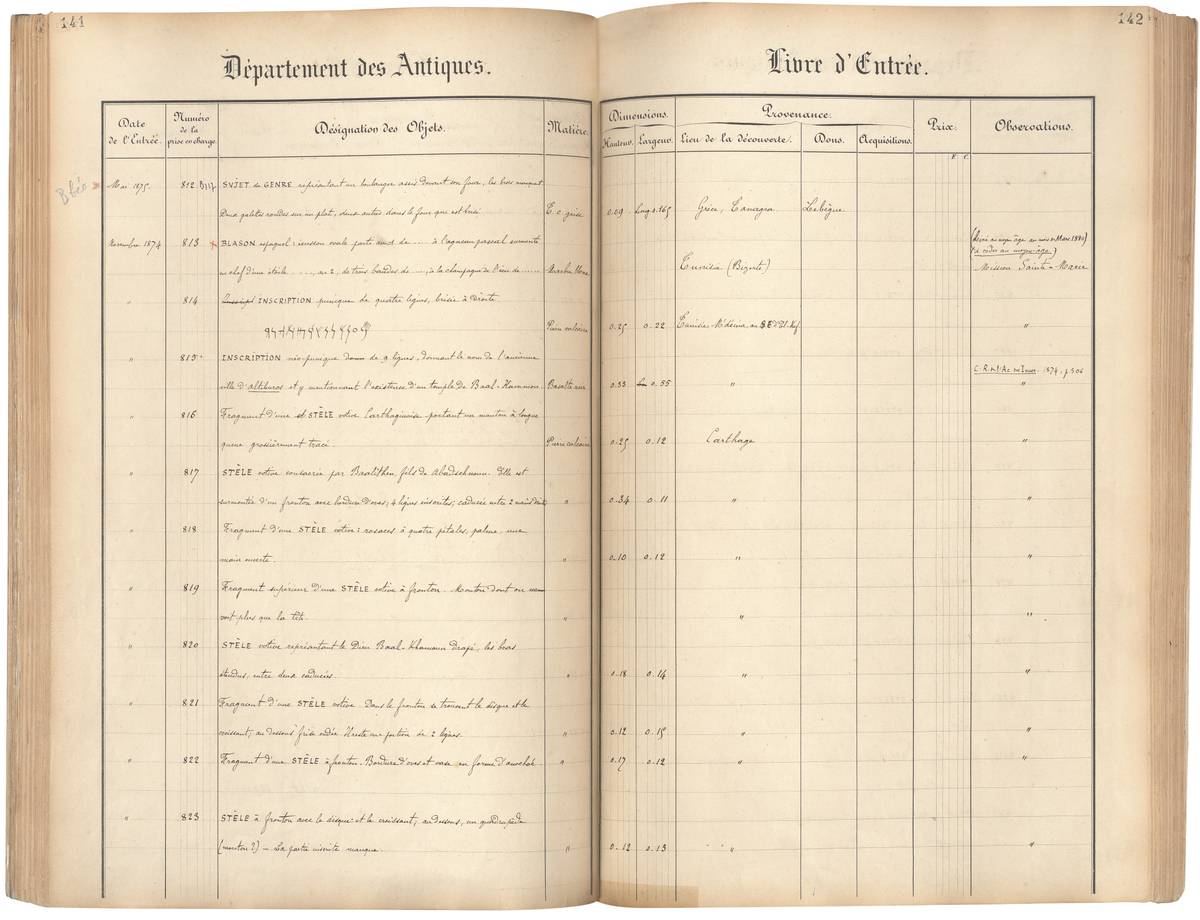 141
142
Département des Antiques.
Livre d'Entrée.
Date de l'Entrée.
Numéro de la prise en charge.
Désignation des Objets.
Matière.
Dimensions.
Hauteur. Largeur.
Provenance.
Lieu de la découverte. Dons. Acquisitions.
Prix.
Observations.
F. C.
Mai 1875. 812 SUJET de GENRE représentant un boulanger assis devant son four, les bras manquent
Deux galettes rondes sur un plat, deux autres dans le four qui est brisé T. c. grise 0.09 Long 0.165 Grèce, Tanagra Lebègue
Novembre 1874 813 BLASON espagnol: écusson ovale parti au 1 de .... à l'agneau pascal surmonté
en chef d'une étoile ...., au 2, de trois bandes de ...., à la champagne de l'écu de ...... Marbre blanc Tunisie (Bizerte) Mission Sainte-Marie
" 814 INSCRIPTION punique de quatre lignes, brisée à droite
Pierre calcaire 0.25 0.22 Tunisie. Médeina au S.E. d'El-Kef "
" 815 INSCRIPTION néo-punique de 9 lignes, donnant le nom de l'ancienne
ville d'Altiburos et y mentionnant l'existence d'un temple de Baal-Hammon. Basalte 0.33 0.55 " C. R. de l'Ac. des Inscr. 1874, p. 306
"
" 816 Fragment d'une STÈLE votive Carthaginoise portant un mouton à longue
queue grossièrement tracé. Pierre calcaire 0.25 0.12 Carthage "
" 817 STÈLE votive consacrée par Baalithen, fils de Abdeschmoun. Elle est
surmontée d'un fronton avec bordure d'oves; 4 lignes inscrites; caducée entre 2 mains " 0.34 0.11 " "
" 818 Fragment d'une STÈLE votive: rosaces à quatre pétales, palme, une
main ouverte. " 0.10 0.12 " "
" 819 Fragment supérieur d'une STÈLE votive à fronton. Mouton dont on ne
voit plus que la tête. " " "
" 820 STÈLE votive représentant le Dieu Baal-Khamoun drapé, les bras
étendus, entre deux caducées. " 0.18 0.14 " "
" 821 Fragment d'une STÈLE votive. Dans le fronton se trouvent le disque et le
croissant; au dessous frise ondée. Il reste une portion de 2 lignes. " 0.12 0.15 " "
" 822 Fragment d'une STÈLE à fronton. Bordure d'oves et vase en forme d'œnochoé " 0.17 0.12 " "
" 823 STÈLE à fronton avec le disque et le croissant; au dessous, un quadrupède
(mouton?) – La partie inscrite manque. " 0.12 0.13 " "